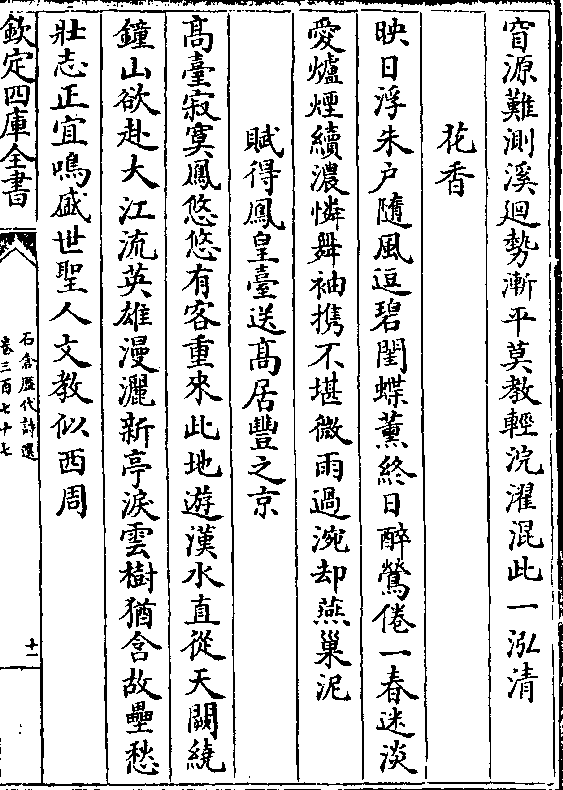 窅源難測溪迴勢漸平莫教輕浣濯混此一泓清
花香
映日浮朱户隨風逗碧閨蝶薰終日醉鶯倦一春迷淡
愛爐煙續濃憐舞袖携不堪微雨過涴却燕巢泥
賦得鳳皇臺送髙居豐之京
髙臺寂寞鳳悠悠有客重來此地遊漢水直從天闕繞
鐘山欲赴大江流英雄漫灑新亭淚雲樹猶含故壘愁
壯志正宜鳴盛世聖人文教似西周
欽定四庫全書
石倉歷代詩選
卷三百七十七
十一